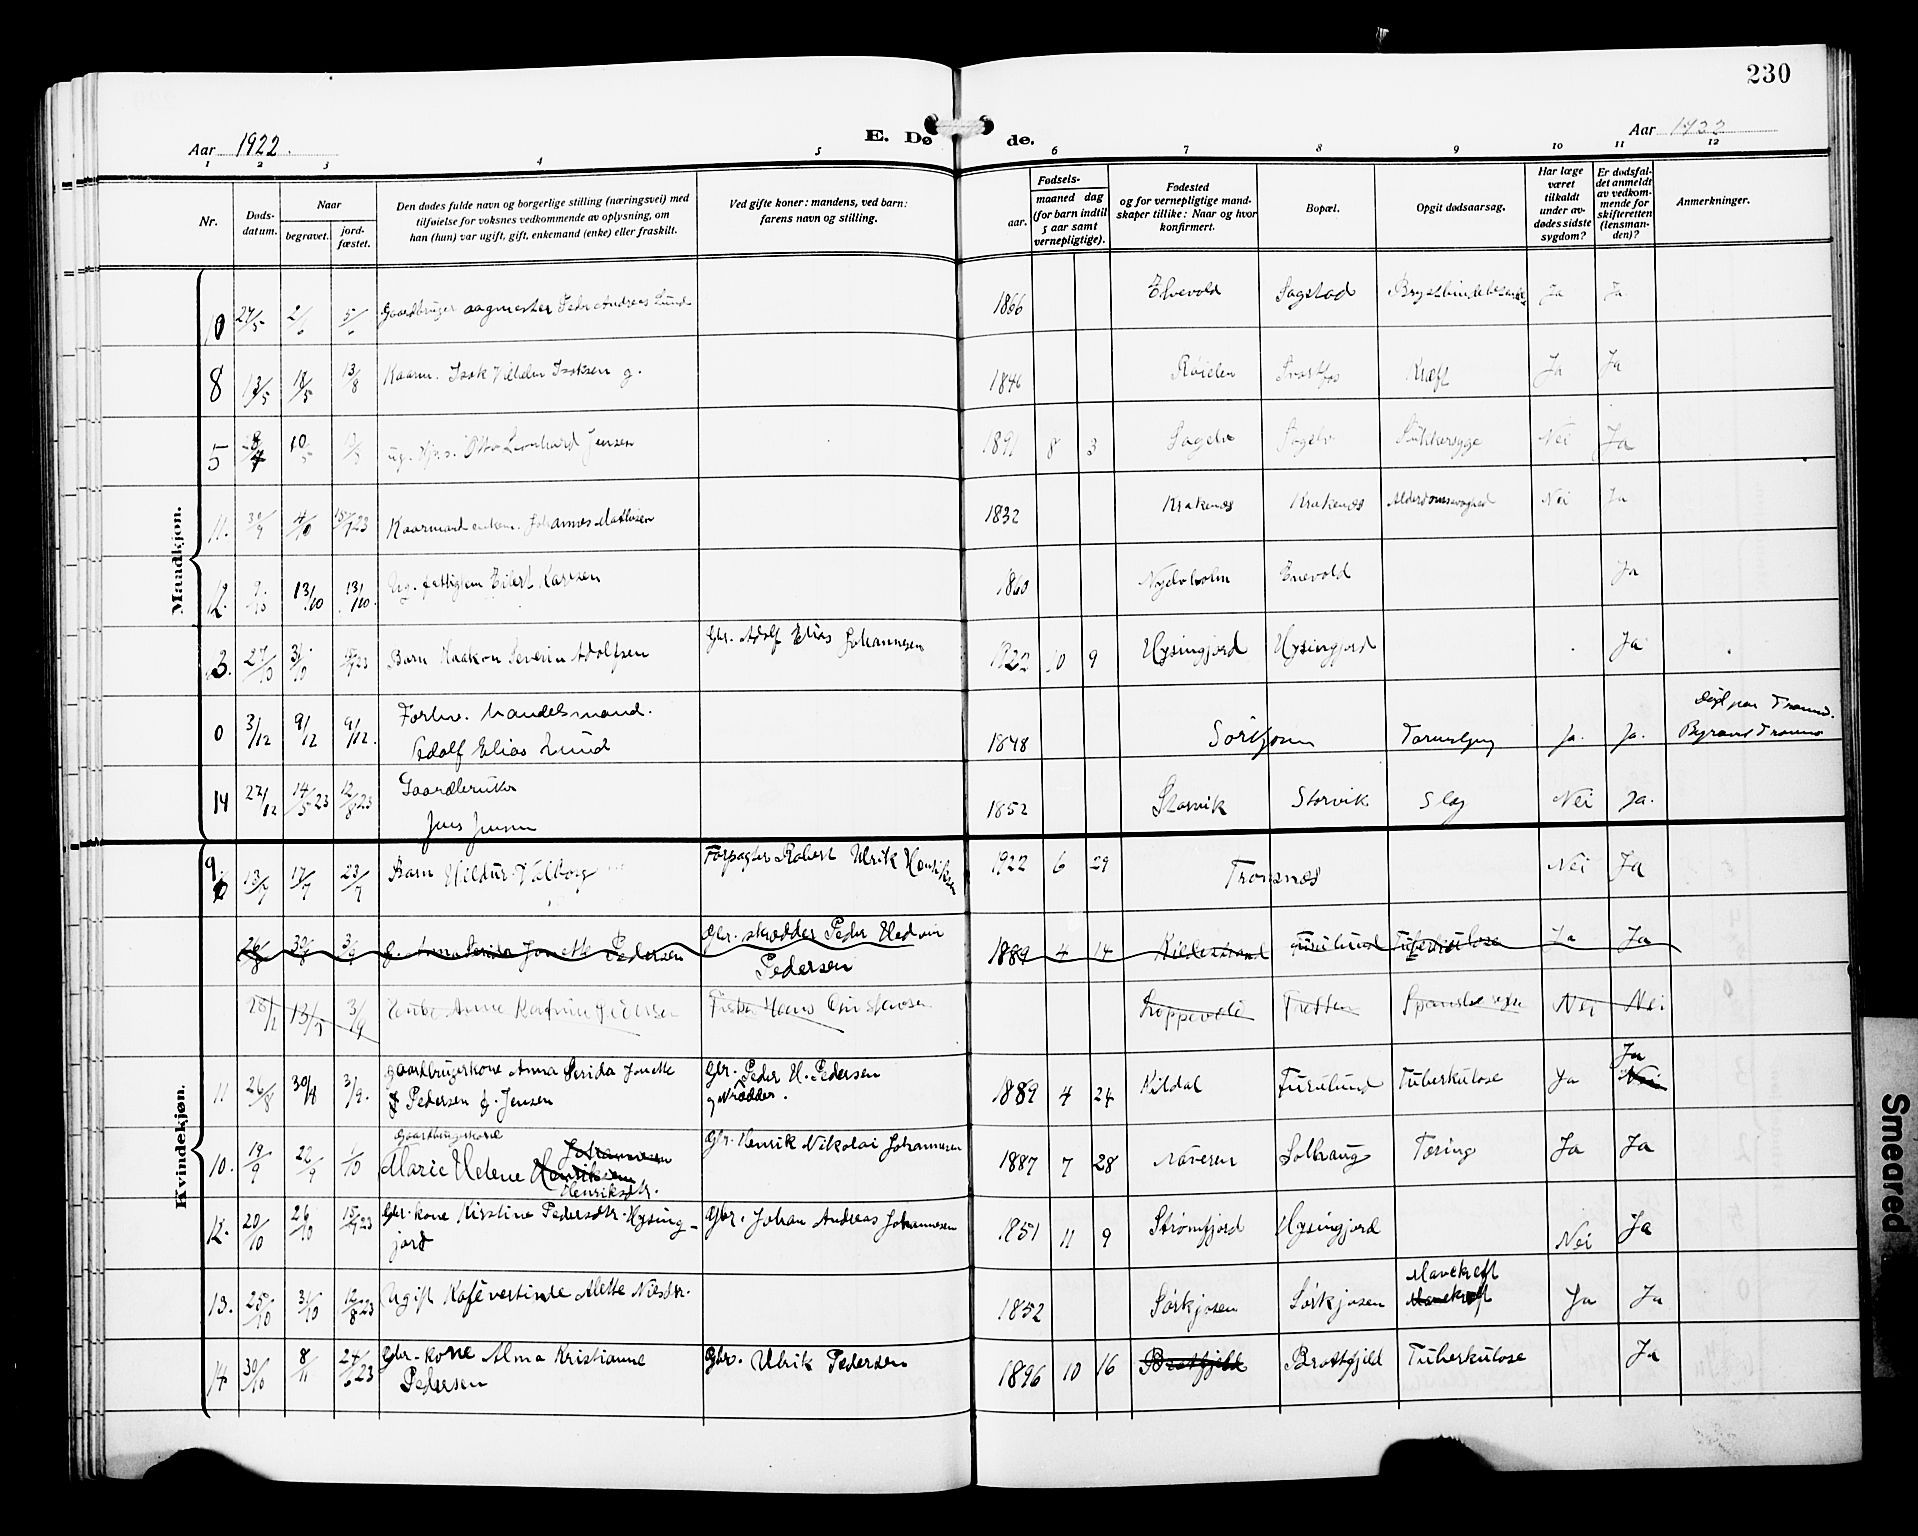 230
Aar 1922.
E. Dø
de.
Aar 1922
1 2 3 4 5 6 7 8 9 10 11 12
Nr.
Døds-
datum.
Naar
begravet.
jord-
fæstet.
Den dødes fulde navn og borgerlige stilling (næringsvei) med
tilføielse for voksnes vedkommende av oplysning, om
han (hun) var ugift, gift, enkemand (enke) eller fraskilt.
Ved gifte koner: mandens, ved barn:
farens navn og stilling.
Fødsels-
aar.
maaned dag
(for barn indtil
5 aar samt
vernepligtige).
Fødested
og for vernepligtige mand-
skaper tillike: Naar og hvor
konfirmert.
Bopæl.
Opgit dødsaarsag.
Har læge
været
tilkaldt
under av-
dødes sidste
sygdom?
Er dødsfal-
det anmeldt
av vedkom-
mende for
skifteretten
(lensman-
den)?
Anmerkninger.
Mandkjøn.
10 27/5 2/6 5/6 Gaardbruger sagmester Peder Andreas Lund 1866 Elvevold Sagstad Ja Ja
8 13/5 18/5 13/8 Kaarm. Isak Isaksen g. 1846 Røielen Kræft Ja Ja
5 10/5 ug. Otto Leonhard Jensen 1891 8 3 Sagelv Sagelv Sukkersyge Nei Ja
11. 30/9 4/10 15/7 23 Kaarmand enkem. Johannes Mathisen 1832 Krakenes Krakenes Alderdomssvaghed Nei Ja
12. 9/10 13/10 13/10. Ug. fattiglem Eilert Karlsen 1860 Nyelvholm Enevold Ja
13. 27/10 31/10 23 Barn Haakon Severin Adolfsen Gbr. Adolf Elias Johannesen 1922 10 9 Hysingjord Hysingjord Ja
0 3/12 9/12 9/12. Forhv. handelsmand.
Adolf Elias Lund 1848 Sørkjosen Ja. Ja.
14 22/12 14/5 23 12/8 23 Gaardbruker
Jens Jensen 1852 Storvik Storvik Slag Nei Ja.
Kvindekjøn.
9. 13/7 17/7 23/7 Barn Hildur Valborg Forpagter Robert Ulrik Henriksen 1922 6 29 Tronsnes Nei Ja
26/8 30/8 3/9 G. Anna Serida Jonette Pedersen Gbr. skrædder Peder Hedvin
Pedersen 1889 4 14 Kildestrand Furulund Tuberkulose Ja Ja
13/7 3/9 Enke Anne Katrine Fisker Hans Christensen Loppevold Tretten Spanske Nei Nei
11 26/8 30/8 3/9. Gaardbrugerkone Anna Serida Jonette
Pedersen f. Jensen Gbr. Peder H. Pedersen
og skrædder. 1889 4 24 Kildal Furulund Tuberkulose Ja Ja
Nei
10. 19/9 22/9 1/10 Gaardbrugerkone
Marie Helene Johannesen
Henriksen
Henriksdtr. Gbr. Henrik Nikolai Johannesen 1887 7 28 Naveren Solhaug Tæring Ja Ja
12. 20/10 26/10 15/7 23 Gbr. kone Kirstine Pedersdtr. Hysing-
jord Gbr. Johan Andreas Johannesen 1851 11 9 Strømfjord Hysingjord Nei Ja
13. 25/10 31/10 12/8 23 Ugift Kafévertinde Alette Nilsdtr. 1852 Sørkjosen Sørkjosen Mavekræft
Mavekræft Ja Ja
14 30/10 8/11 24/6 23 Gbr. kone Alma Kristianne
Pedersen Gbr. Ulrik Pedersen 1896 10 16 Bratfjeld Bratfjeld Tuberkulose Ja
Smeared